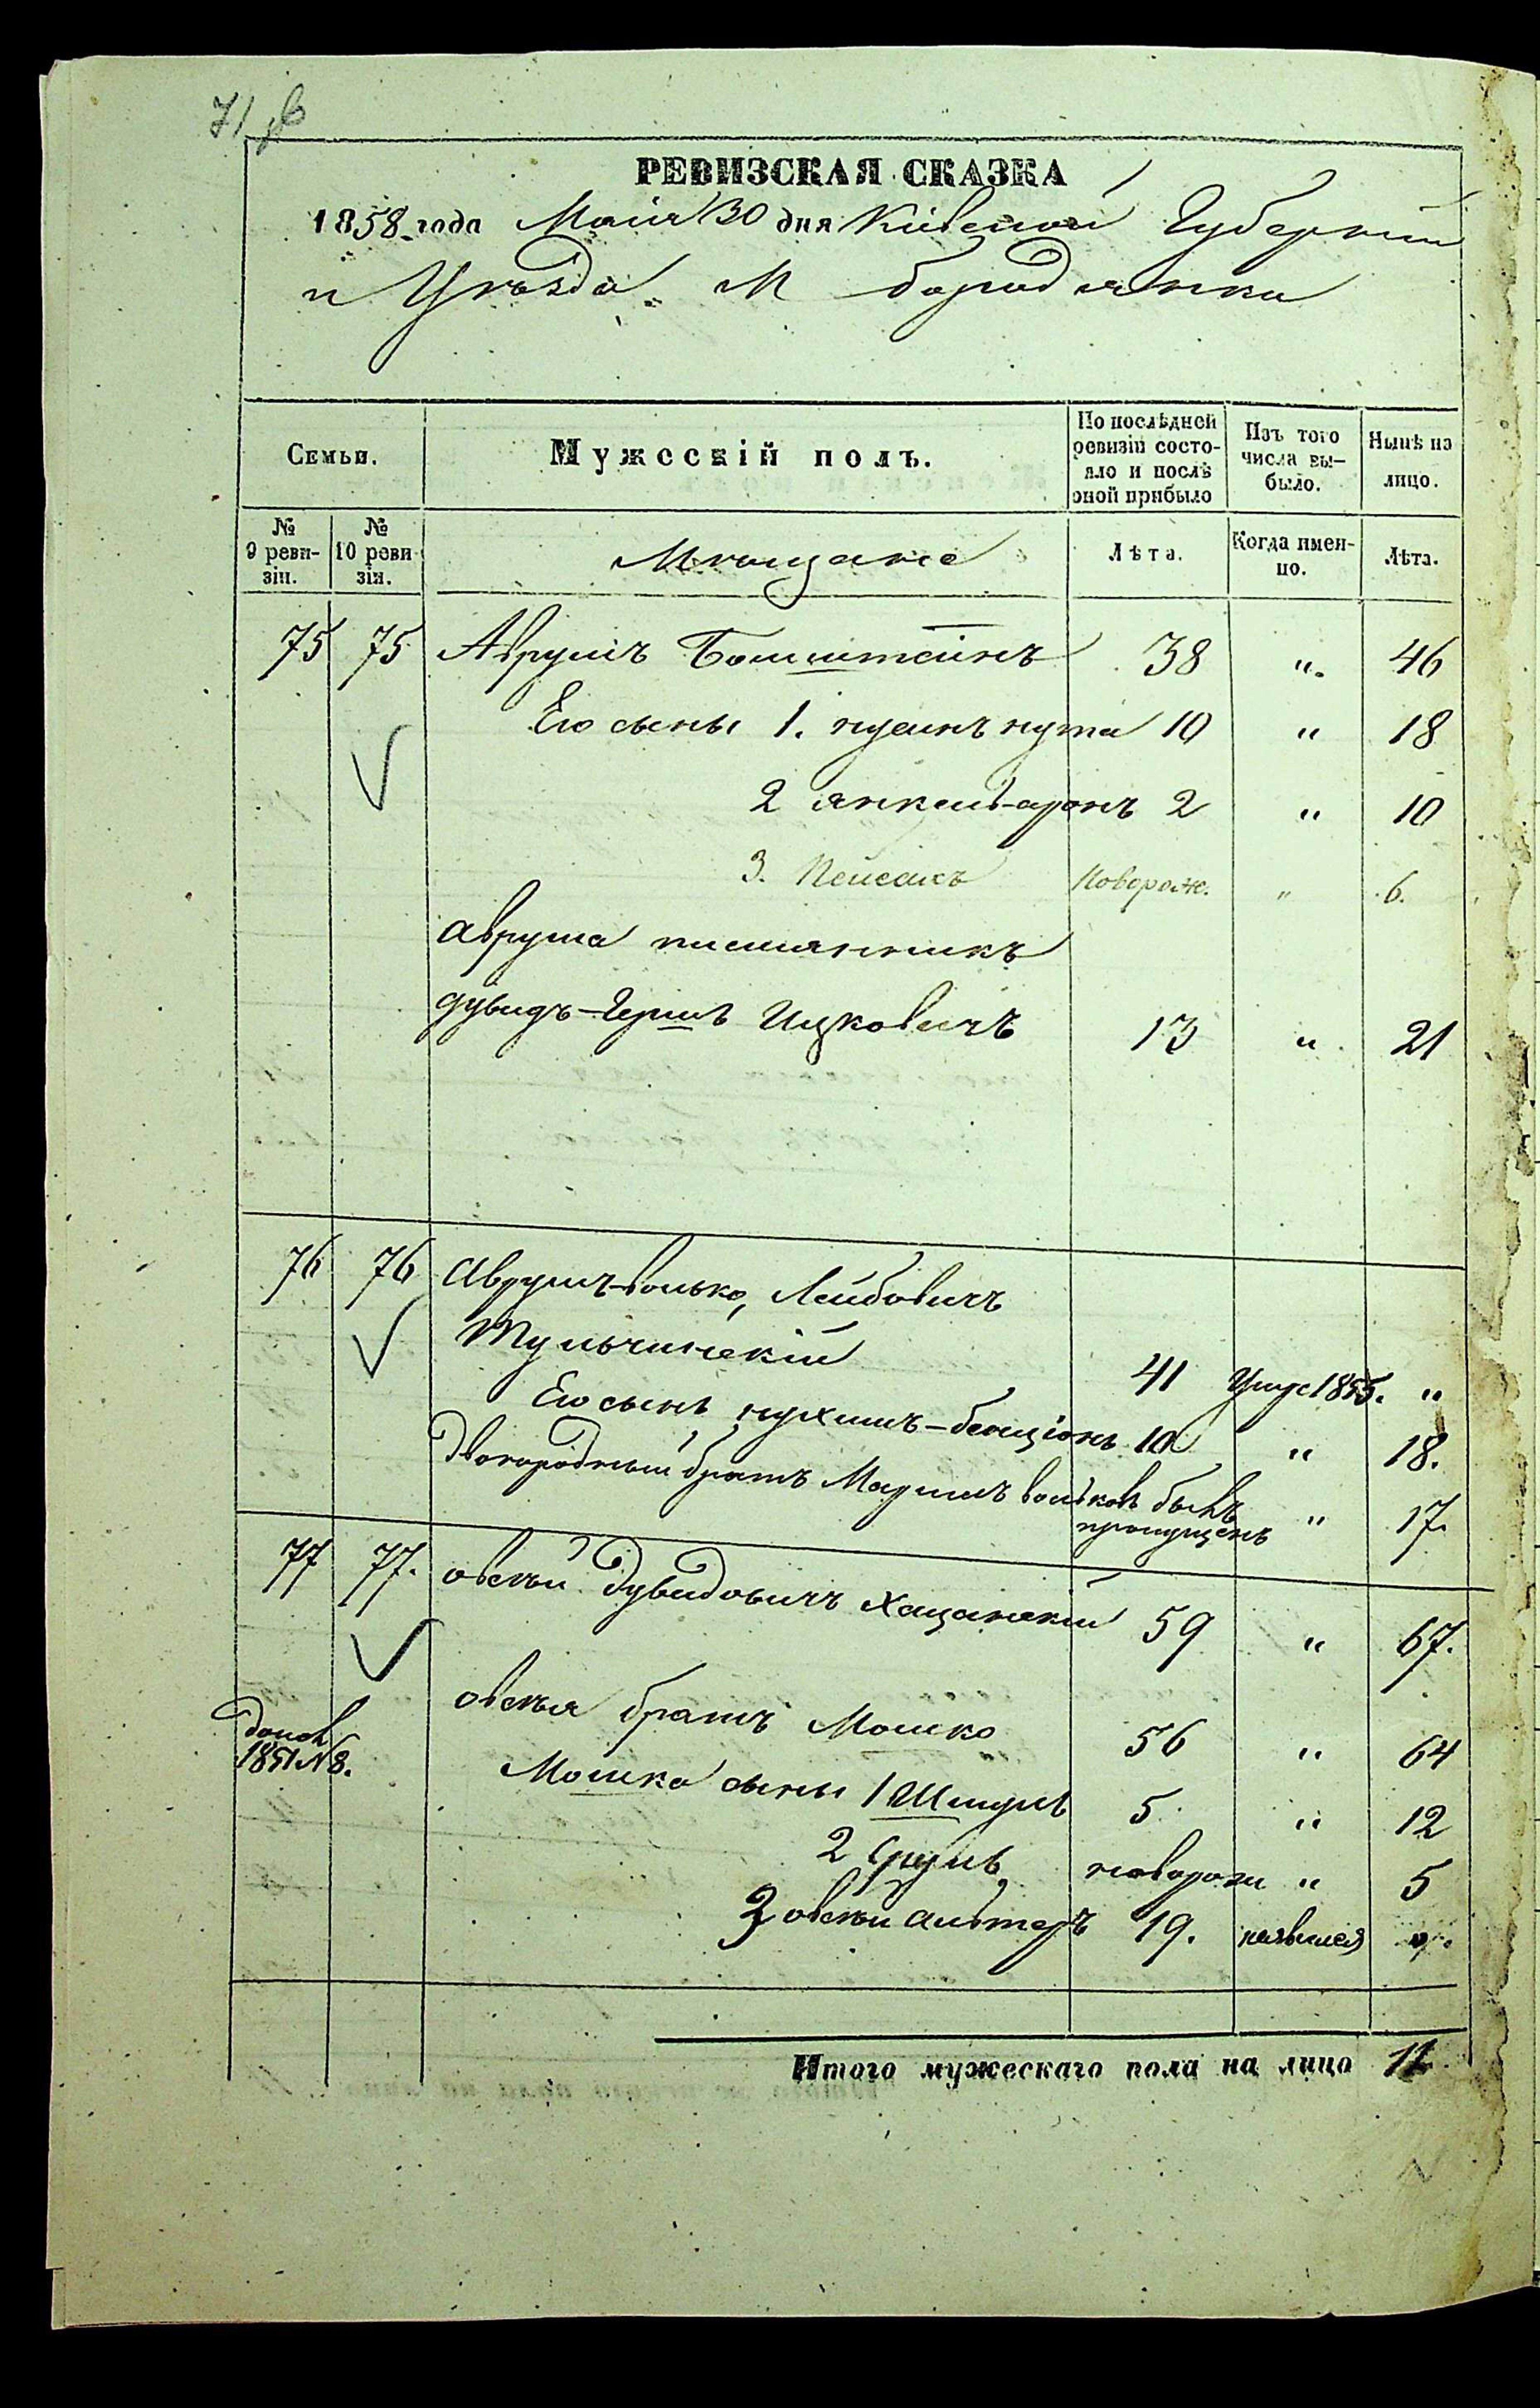 71
РЕВИЗСКАЯ СКАЗКА
1858 года Маія 30 дня Кіевской Губерніи
и Уѣзда М бородянки
Семьи. Мужескій полъ. По послѣдней ревизіи состояло и послѣ оной прибыло Изъ того числа вы-было. Нынѣ на лицо.
№ 9 реви-зіи. № 10 реви зіи. Мѣщане Лѣта. Когда имен-но. Лѣта.
75 75 Аврумъ Боммштейнъ 38 " 46
Его сыны 1. нусинъ нута 10 " 18
2 янкель-аронъ 2 " 10
3. Пейсахъ Новорож. " 6.
Аврума племянникъ
дувидъ-Гершъ Ицковичъ 13 " 21
76 76 Аврумъ-волько, Лейбовичъ
Тульчинскій 41 Умре 1855. "
Его сынъ нухимъ-бенціонъ 10 " 18.
Двоюродный братъ Мордко вольковъ бывъ пропущенъ " 17.
77 77. овсѣй Дувидовичъ Хацанскій 59 " 67.
овсѣя братъ Мошко 56 " 64
допол 1851 N 8.
Мошка сыны 1 Шмуль 5 " 12
2 Сруль новорож " 5
3 овсѣй альтеръ 19. неявился
Итого мужескаго пола на лицо 11